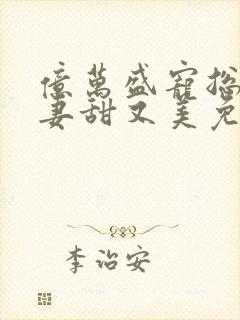 億萬盛寵總
妻甜又美免
李治安